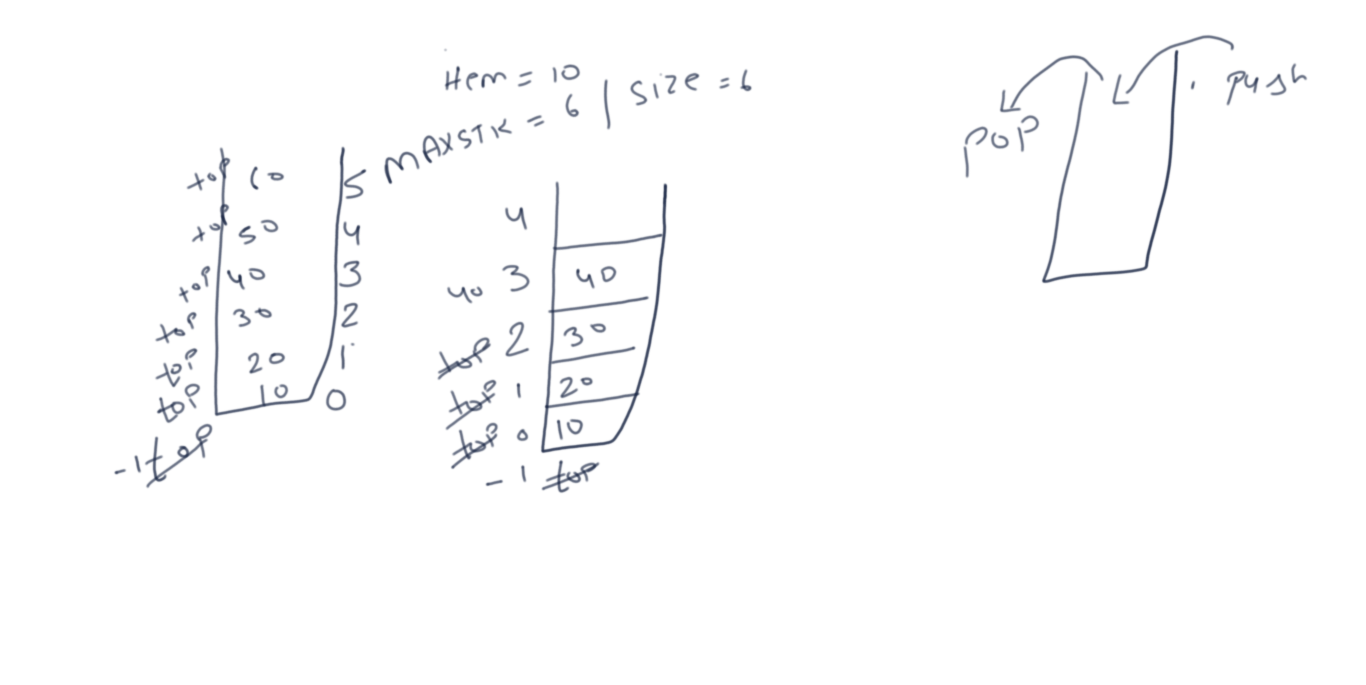 Item = 10
MAXSTK = 6 | Size = 6
top 60 5
top 50 4
top 40 3
top 30 2
top 20 1
top 10 0
-1 top
4
40 3 40
top 2 30
top 1 20
top 0 10
-1 top
pop
push